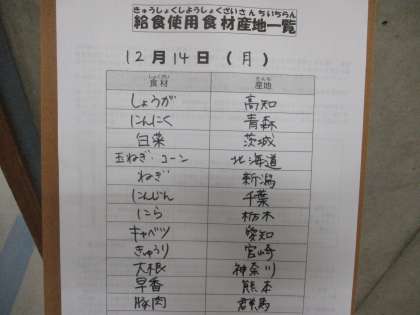 きゅうしょくしようしょくざいさんちいちらん
給食使用食材産地一覧
12月14日(月)
しょくざい さんち
食材 産地
しょうが 高知
にんにく 青森
白菜 茨城
玉ねぎ・コーン 北海道
ねぎ 新潟
にんじん 千葉
にら 栃木
キャベツ 愛知
きゅうり 宮崎
大根 神奈川
早香 熊本
豚肉 群馬